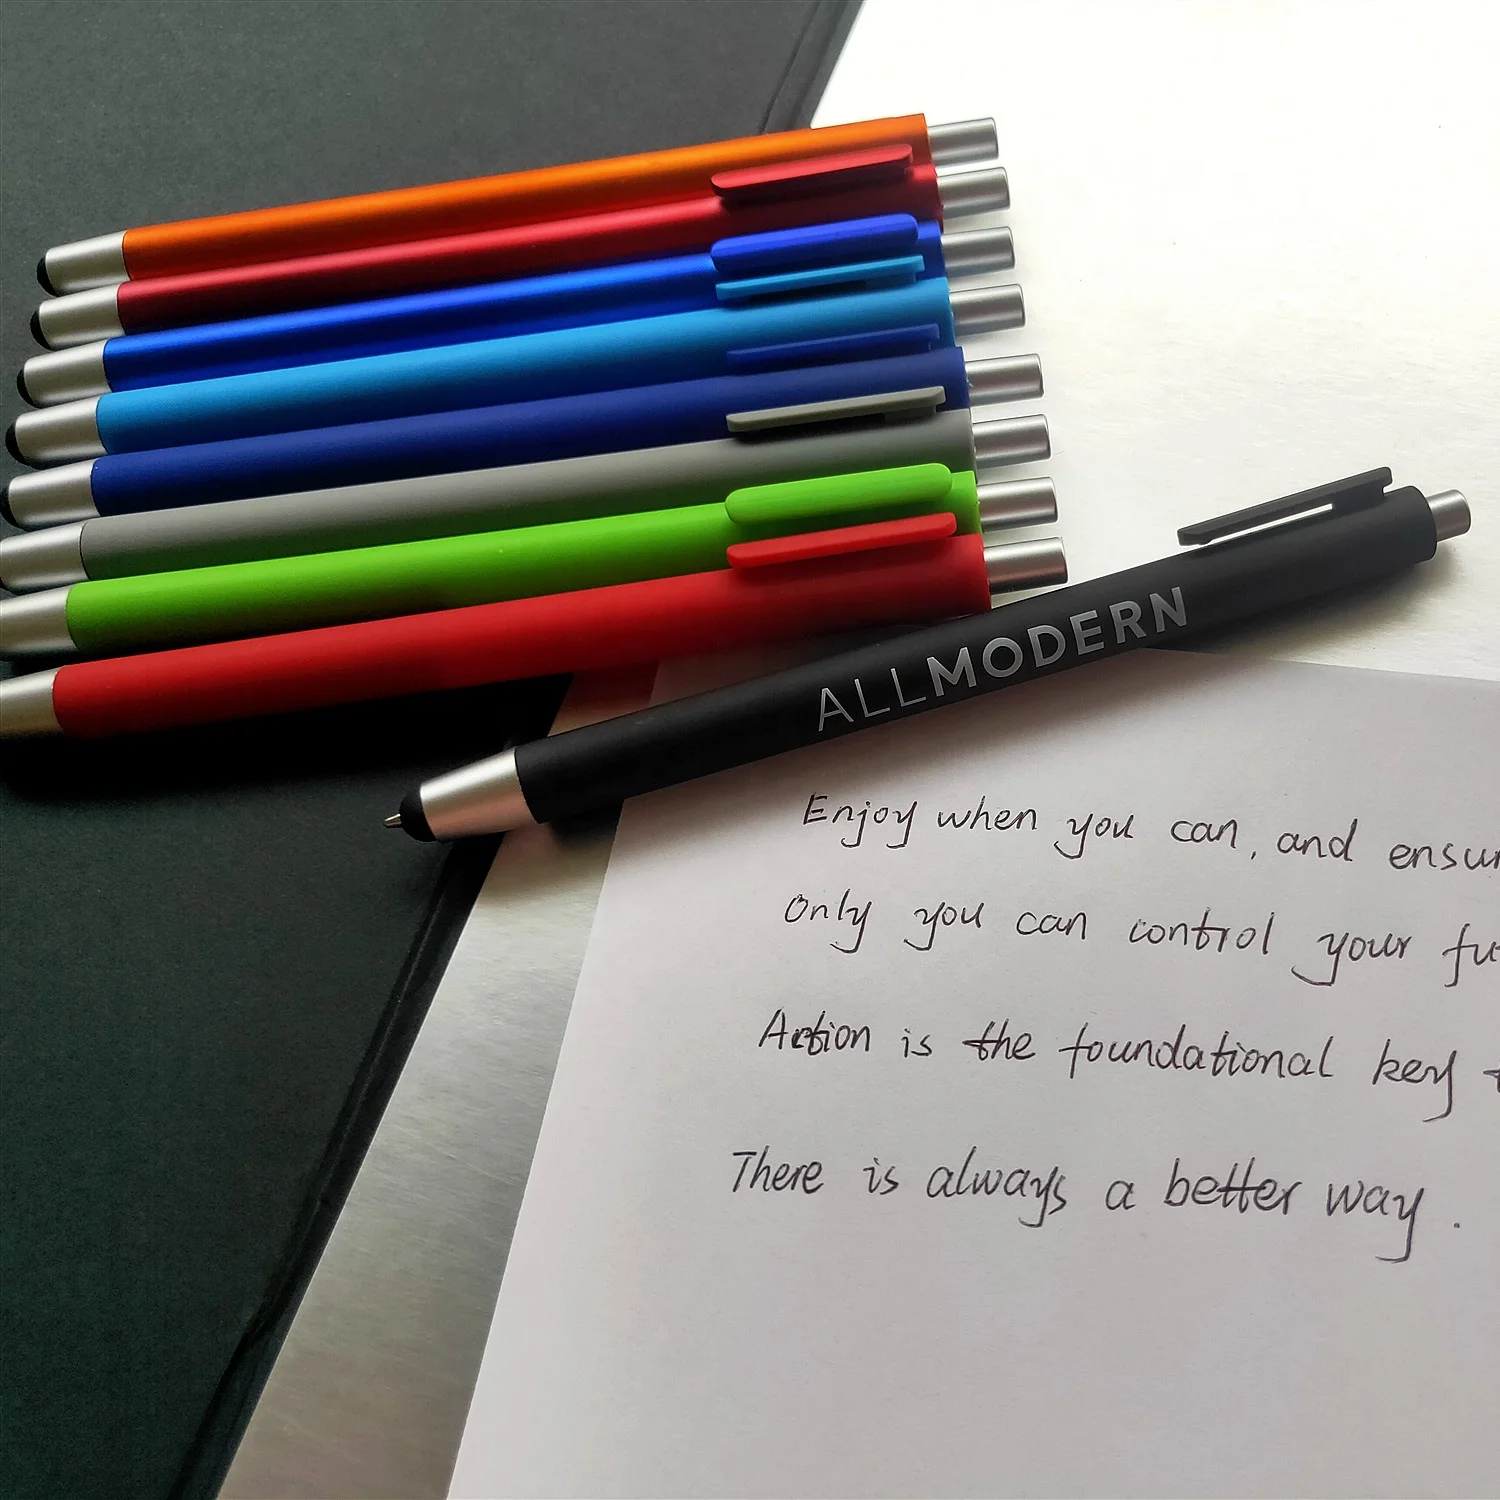 ALLMODERN
Enjoy when you can, and
Only you can control your
Action is the foundational key
There is always a better way.